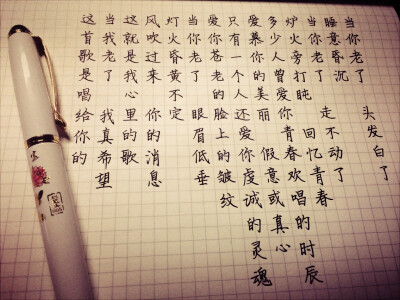 当你老了 头发白了
睡意昏沉
当你老了 走不动了
炉火旁打盹 回忆青春
多少人曾爱你 青春欢唱的时辰
爱慕你的美丽 假意或真心
只有一个人还爱你 虔诚的灵魂
爱你苍老的脸上的皱纹
当你老了 眼眉低垂
灯火昏黄不定
风吹过来 你的消息
这就是我心里的歌
当我老了 我真希望
这首歌是唱给你的